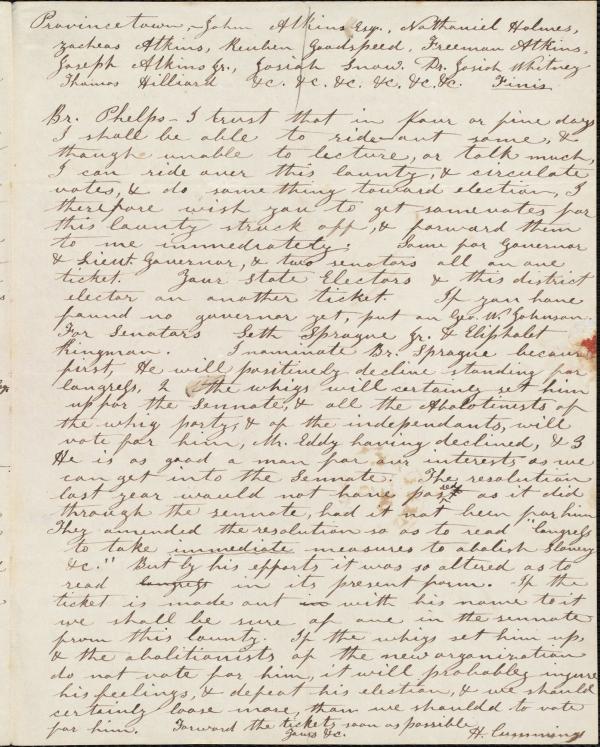 Provincetown,- John Atkins Esq., Nathaniel Holmes,
Zacheas Atkins, Reuben Goodspeed, Freeman Atkins,
Joseph Atkins Jr., Josiah Snow. Dr. Josiah Whitney
Thomas Hilliard &c. &c. &c. &c. &c. &c. Finis
Br. Phelps - I trust that in four or five days
I shall be able to ride out some, &
though unable to lecture, or talk much,
I can ride over this county, & circulate
votes, & do something toward election, I
therefore wish you to get some votes for
this county struck off, & forward them
to me immediately: Some for Governor
& Lieut. Governor, & two senators all on one
ticket. Your State Electors & this district
elector on another ticket. If you have
found no governor yet, put on Geo. W. Johnson.
For Senators Seth Sprague Jr. & Eliphalet
Kingman. I nominate Br. Sprague because
first, He will positively decline standing for
congress, 2 the whigs will certainly set him
up for the Sennate, & all the Abolotinists of
the whig party, & of the independants, will
vote for him, Mr. Eddy having declined, & 3
He is as good a man for our interests as we
can get into the Sennate. The resolution
last year would not have passed as it did
through the sennate, had it not been for him
They amended the resolution so as to read "Congress
to take immediate measures to abolish slavery
&c." But by his efforts it was so altered as to
read congress in its present form. If the
ticket is made out in with his name to it
we shall be sure of one in the sennate
from this County. If the whigs set him up,
& the abolitionists of the new organization
do not vote for him, it will probably injure
his feelings, & defeat his election, & we should
certainly loose more, than we shoulded to vote
for him. Forward the tickets soon as possible
Yours &c. H. Cummings